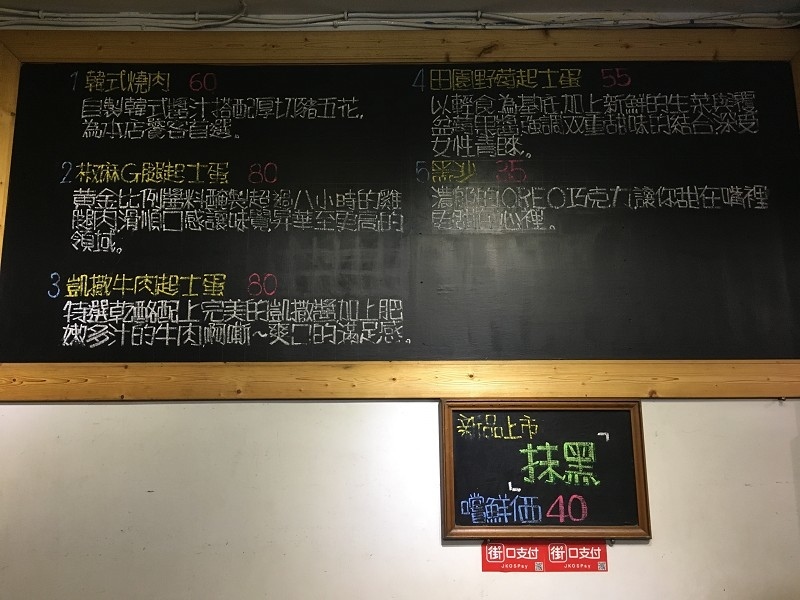 1 韓式燒肉 60
自製韓式醬汁搭配厚切豬五花,
為本店饕客首選。
2 椒麻G腿起士蛋 80
黃金比例醬料醃製超過八小時的雞
腿肉滑順口感讓味覺昇華至更高的
領域。
3 凱撒牛肉起士蛋 80
特選乾酪配上完美的凱撒醬加上肥
嫩多汁的牛肉啊嘶~爽口的滿足感。
4 田園野莓起士蛋 55
以輕食為基底加上新鮮的生菜與覆
盆莓果醬造調双重甜味的結合深受
女性青睞。
5 黑沙 35
濃郁的OREO巧克力讓你甜在嘴裡
心裡。
新品上市
「抹黑」
嚐鮮価 40
街口支付 街口支付
JKOSPay JKOSPay